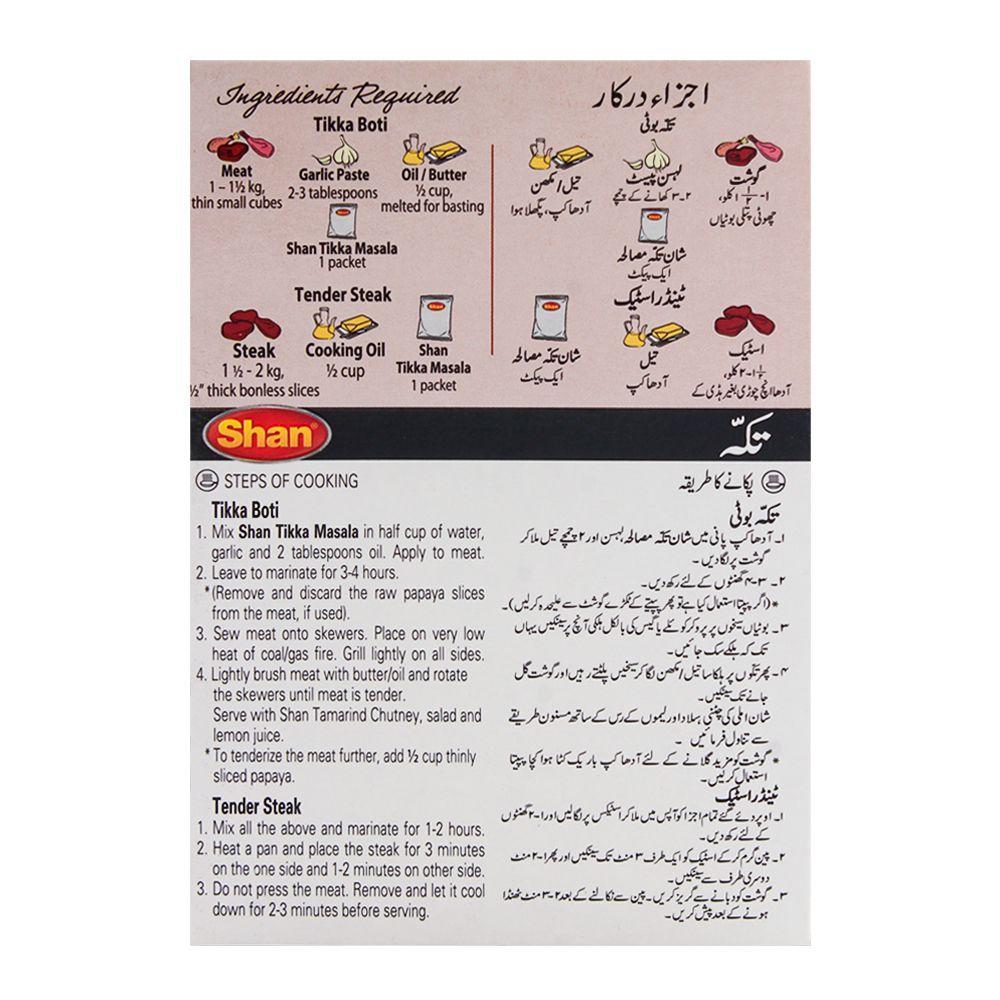 Ingredients Required
Tikka Boti
Meat
1 – 1½ kg,
thin small cubes
Garlic Paste
2-3 tablespoons
Oil / Butter
½ cup,
melted for basting
Shan
Shan Tikka Masala
1 packet
Tender Steak
Steak
1 ½ - 2 kg,
½" thick bonless slices
Cooking Oil
½ cup
Shan
Shan
Tikka Masala
1 packet
اجزاء درکار
تکہ بوٹی
گوشت
۱-۱½ کلو،
چھوٹی پتلی بوٹیاں
لہسن پیسٹ
۲-۳ کھانے کے چمچے
تیل/مکھن
آدھا کپ، پگھلا ہوا
Shan
شان تکہ مصالحہ
ایک پیکٹ
ٹینڈر اسٹیک
اسٹیک
۱½-۲ کلو،
آدھا انچ چوڑی بغیر ہڈی کے
تیل
آدھا کپ
Shan
شان تکہ مصالحہ
ایک پیکٹ
Shan
تکّہ
STEPS OF COOKING
Tikka Boti
1. Mix Shan Tikka Masala in half cup of water,
garlic and 2 tablespoons oil. Apply to meat.
2. Leave to marinate for 3-4 hours.
*(Remove and discard the raw papaya slices
from the meat, if used).
3. Sew meat onto skewers. Place on very low
heat of coal/gas fire. Grill lightly on all sides.
4. Lightly brush meat with butter/oil and rotate
the skewers until meat is tender.
Serve with Shan Tamarind Chutney, salad and
lemon juice.
* To tenderize the meat further, add ½ cup thinly
sliced papaya.
Tender Steak
1. Mix all the above and marinate for 1-2 hours.
2. Heat a pan and place the steak for 3 minutes
on the one side and 1-2 minutes on other side.
3. Do not press the meat. Remove and let it cool
down for 2-3 minutes before serving.
پکانے کا طریقہ
تکہ بوٹی
۱۔ آدھا کپ پانی میں شان تکہ مصالحہ، لہسن اور ۲ چمچے تیل ملا کر
گوشت پر لگا دیں۔
۲۔ ۳-۴ گھنٹوں کے لئے رکھ دیں۔
*(اگر پپیتا استعمال کیا ہے تو پھر پپیتے کے ٹکڑے گوشت سے علیحدہ کرلیں)۔
۳۔ بوٹیاں سیخوں پر پرو کر کوئلے یا گیس کی بالکل ہلکی آنچ پر سینکیں یہاں
تک کہ ہلکے سک جائیں۔
۴۔ پھر تکوں پر ہلکا سا تیل/مکھن لگا کر سیخیں پلٹتے رہیں اور گوشت گل
جانے تک سینکیں۔
شان املی کی چٹنی، سلاد اور لیموں کے رس کے ساتھ مسنون طریقے
سے تناول فرمائیں۔
* گوشت کو مزید گلانے کے لئے آدھا کپ باریک کٹا ہوا کچا پپیتا
استعمال کرلیں۔
ٹینڈر اسٹیک
۱۔ اوپر دئے گئے تمام اجزا کو آپس میں ملا کر اسٹیکس پر لگالیں اور ۱-۲ گھنٹوں
کے لئے رکھ دیں۔
۲۔ پین گرم کر کے اسٹیک کو ایک طرف ۳ منٹ تک سینکیں اور پھر ۱-۲ منٹ
دوسری طرف سے سینکیں۔
۳۔ گوشت کو دبانے سے گریز کریں۔ پین سے نکالنے کے بعد ۲-۳ منٹ ٹھنڈا
ہونے کے بعد پیش کریں۔